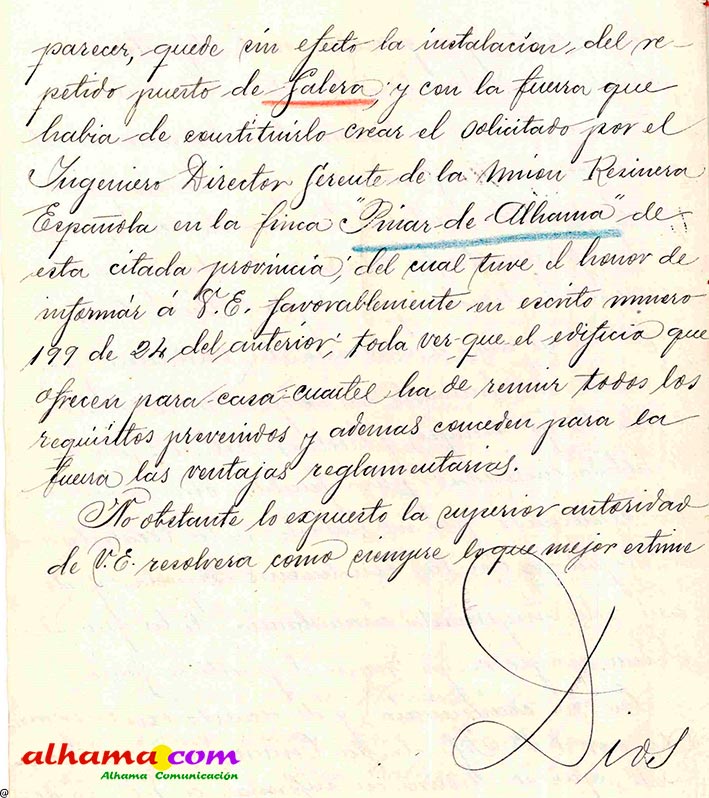 parecer, quede sin efecto la instalacion, del re-
petido puerto de Galera; y con la fuerza que
habia de constituirlo crear el solicitado por el
Ingeniero Director Gerente de la Union Resinera
Española en la finca "Pinar de Alhama" de
esta citada provincia; del cual tuve el honor de
informár á V.E. favorablemente en escrito numero
199 de 24 del anterior; toda vez que el edificio que
ofrecen para casa-cuartel ha de reunir todos los
requisitos prevenidos y ademas conceden para la
fuerza las ventajas reglamentarias.
No obstante lo expuesto la superior autoridad
de V.E. resolvera como siempre lo que mejor estime
Dios
alhama.com
Alhama Comunicación
@